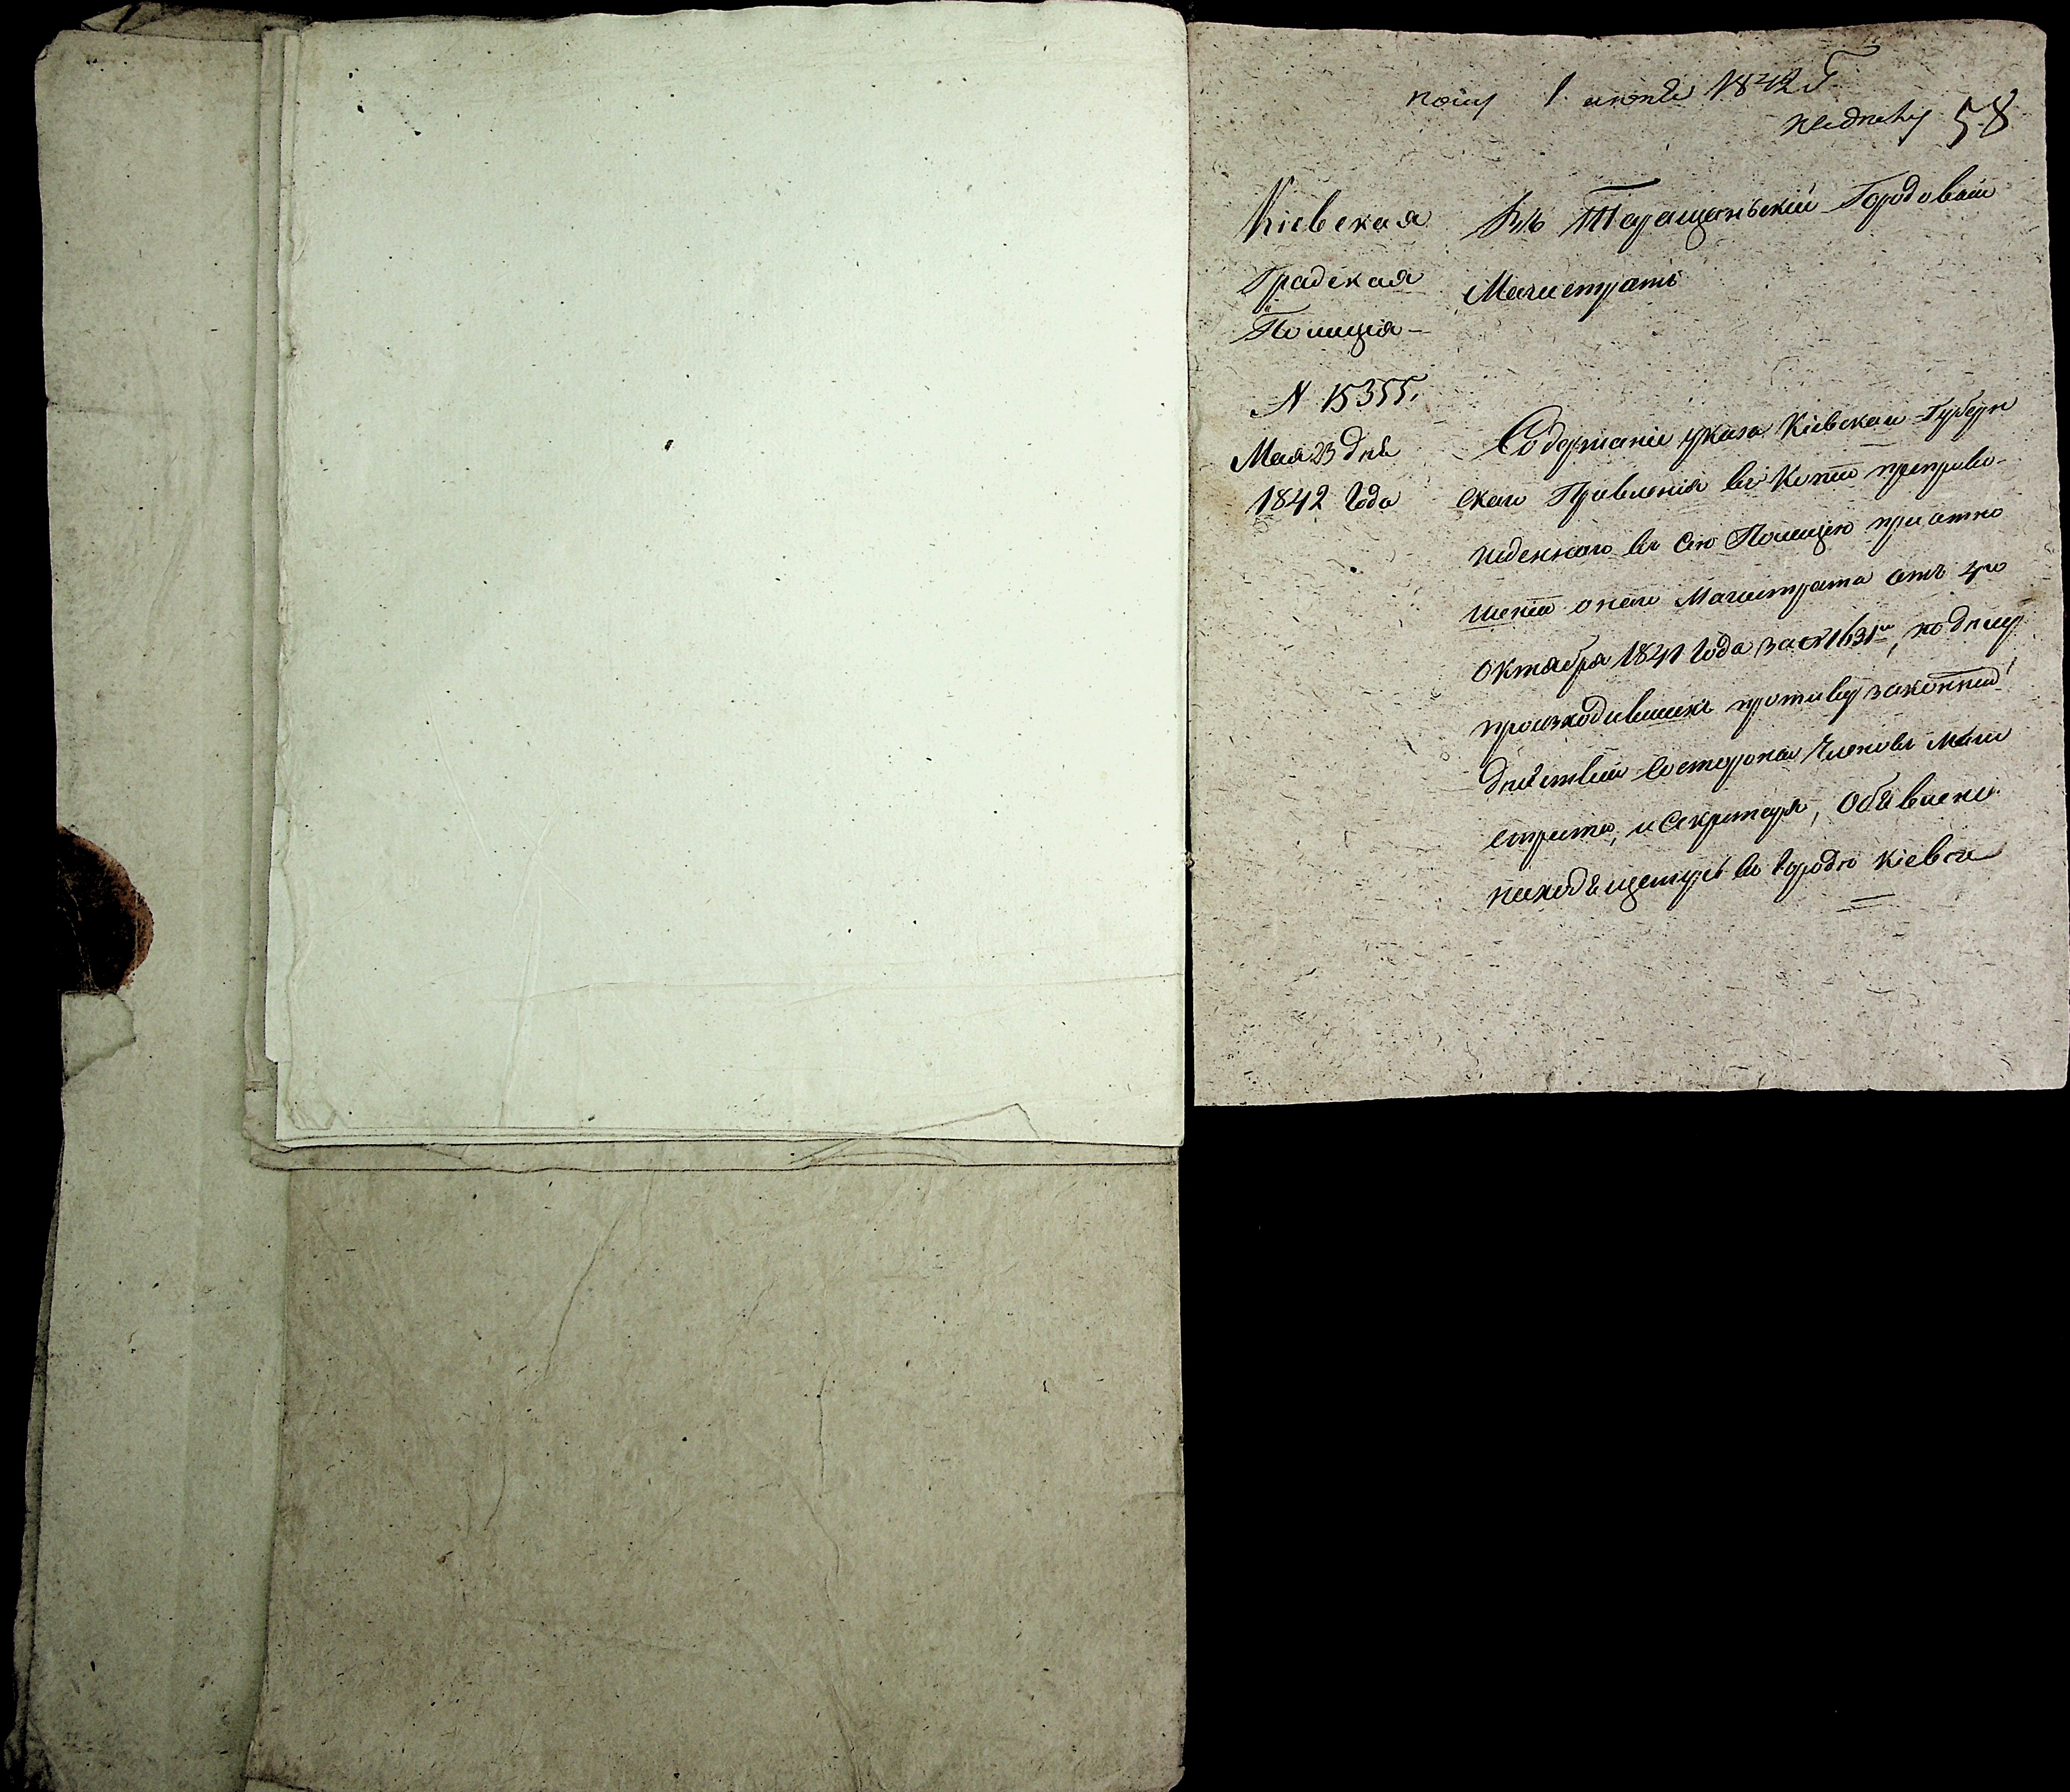 1 июня 1842 г
58
Кіевская
Градская
Полиція
N 15355.
Мая 23 дня
1842 Года
Въ Таращанскій Городовой
Магистратъ
Содержаніе указа Кіевскаго Губерн
скаго Правленія въ Копіи препрово-
жденнаго въ сію Полицію при отно
шеніи онаго Магистрата отъ 4го
Октября 1841 Года за № 1631м, по делу
производившихъ противузаконныя
действія со стороны Членовъ Маги
страта, и Секретаря, Объявлено
находящемуся въ Городе Кіеве